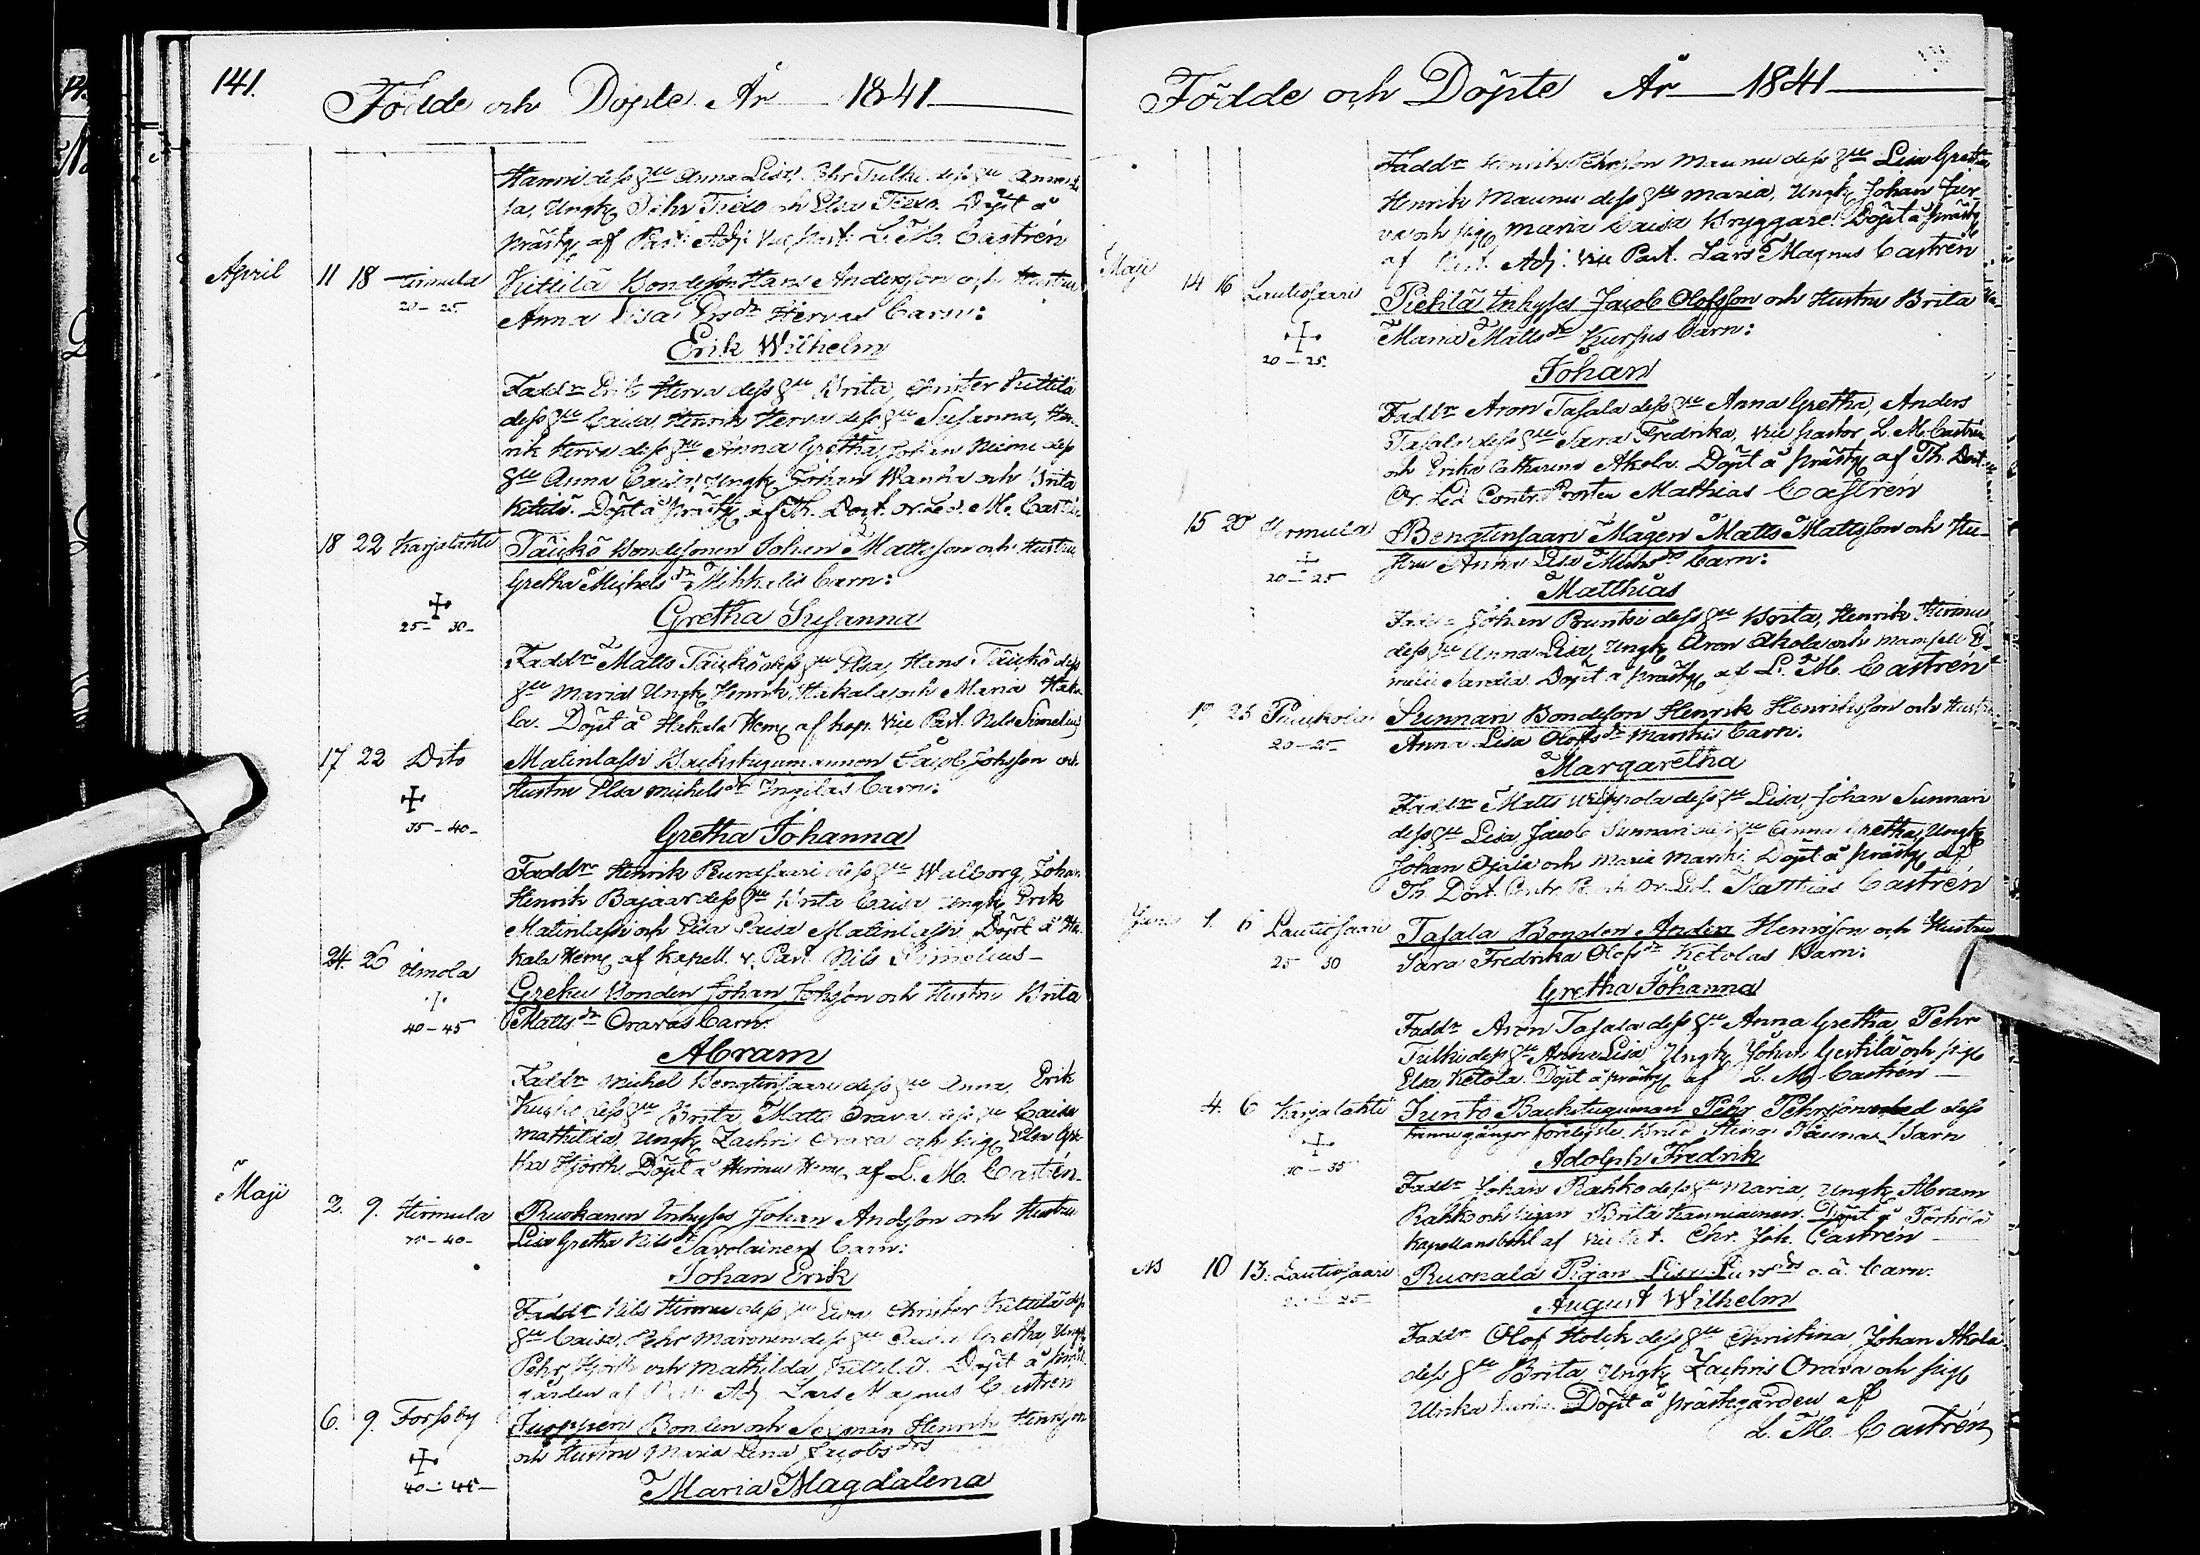 141.
Födde och Döpte År 1841
Hanni dess Hu Anna Lisa, Pehr Tulki dess Hu Anna Li
sa, Ungk Pehr och Elsa Döpt å
prästg af Past. Adj. Vice Past. L. M. Castrén
April 11 18 Hirmula Kittilä Bondeson Hans Andersson och Hustru
20-25 Anna Lisa Ersdr Hervas barn:
Erik Wilhelm
Faddr Erik Herva dess Hu Brita, Christer Kittilä
dess Hu Caisa, Henrik Herva dess Hu Susanna, Hen-
rik Herva dess Hu Anna Gretha, Johan Niemi dess
Hu Anna Caisa, Ungk Johan Wanha och Brita
Kittilä. Döpt å prästg af Th. Doct. o. Led. M. Castrén
18 22 Karjalahti Täickö Bondesonen Johan Mattsson och Hustru
Gretha Michelsdr Mihkelis barn:
25-30- Gretha Susanna
Faddr Matts Täickö dess Hu Elsa, Hans Täickö dess
Hu Maria Ungk Henrik Hakala och Maria Haka-
la. Döpt å Hakala Hem af kap. Vice Past. Nils Simelius
17 22 Dito Matinlassi Backstugumannen Jacob Johsson och
Hustru Elsa Michelsdr Ingilas barn:
35-40- Gretha Johanna
Faddr Henrik dess Hu Walborg, Johan
Henrik Bajaar dess Hu Brita Caisa, Ungk Erik
Matinlassi och Elsa Caisa Matinlassi. Döpt å Ha-
kala Hem af Kapell. v. Past. Nils Simelius-
24. 26 Ilmola Greku Bonden Johan Johsson och Hustru Brita
40-45 Mattsdr Oravas barn.
Abram
Faddr Michel Bengtinsaari dess Hu Anna, Erik
dess Hu Brita, Matts Orava dess Hu Caisa
Mathilda, Ungk Zachris Orava och pig Elsa Gre-
tha Hjorth. Döpt å Hirmu Hem af L. M. Castrén.
Maji 2. 9. Hirmula Ruokanen Inhyses Johan Andsson och Hustru
-40- Lisa Gretha Nilsdr Savolainens barn:
Johan Erik
Faddr Nils Hirmu dess Hu Lisa Christer Kittilä dess
Hu Caisa, Pehr Maronen dess Hu Caisa Gretha, Ungk
Pehr Hjorth och Mathilda Kittilä. Döpt å Präst-
gården af Past. Adj Lars Magnus Castrén
6. 9. Forssby Juopperi Bonden och Sexman Henrik Henrsson
och Hustru Maria Lena Jacobsdrs
40-45- Maria Magdalena
Födde och Döpte År 1841
Faddr Henrik Pehrsson Maunu dess Hu Lisa Gretha
Henrik Maunu dess Hu Maria, Ungk Johan Jur
va och pig Maria Caisa Bryggare. Döpt å prästg
af Past. Adj. Vice Past. Lars Magnus Castrén
Maji 14 16 Lautiosaari Piekilä Inhyses Jacob Olofsson och Hustru Brita
Maria Mattsdr Kursus barn:
20-25. Johan
Faddr Aron Tasala dess Hu Anna Gretha, Anders
Tasala dess Hu Sara Fredrika, Vice pastor L. M. Castrén
och Erika Catharina Akola. Döpt å prästg af Th. Doct.
Or. Led. Contr. Prosten Mathias Castrén
15 20 Hirmula Bengtinsaari Mågen Matts Mattsson och Hu-
stru Anna Lisa Michsdrs barn:
20-25 Matthias
Faddr Johan Pruntsi dess Hu Brita, Henrik Hirmu
dess Hu Anna Lisa, Ungk Aron Akola och Mamsell E-
milie Döpt å prästg af L. M. Castrén
19 23 Paickola Sunnari Bondeson Henrik Henriksson och Hustru
20-25- Anna Lisa Olofsdr Marskis barn.
Margaretha
Faddr Matts dess Hu Lisa, Johan Sunnari
dess Hu Lisa, Jacob Sunnari dess Hu Anna Gretha, Ungk
Johan Ojala och Maria Marski. Döpt å prästg af
Th. Doct. Contr. P. och Or. Led. Matthias Castrén
Junii 1. 6 Lautiosaari Tasala Bonden Anders Henrsson och Hustru
25 30 Sara Fredrika Olofsdr Ketolas Barn:
Gretha Johanna
Faddr Aron Tasala dess Hu Anna Gretha, Pehr
Tulki dess Hu Anna Lisa, Ungk Johan Gertilä och pig
Elsa Ketola. Döpt å prästg af L. M. Castrén
4. 6 Karjalahti Junto Backstuguman Pehr Pehrsson med dess
trenne gånger förelyste Brud Stina Naunas Barn
30-35 Adolph Fredrik
Faddr Johan Rahko dess Hu Maria, Ungk Abram
Rahko och pigan Brita Kanniainen. Döpt å Törhölä
Kapellansbohl af Vice Past. Chr. Joh. Castrén
NB 10 13. Lautiosaari Ruonala Pigan Lisa Larsdrs o. ä. barn.
20-25- August Wilhelm
Faddr Olof Holck dess Hu Christina, Johan Akola
dess Hu Brita, Ungk Zachris Orava och pig
Ulrika Döpt å prästegården af
L. M. Castrén